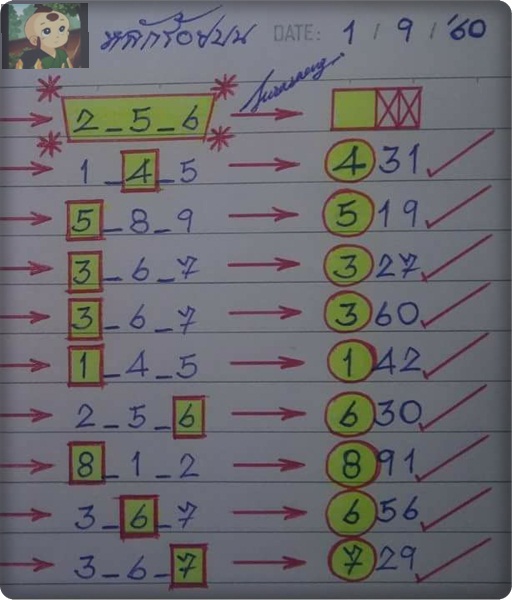 หลักร้อยบน DATE: 1 / 9 / '60
2_5_6
1_4_5 431
5_8_9 519
3_6_7 327
3_6_7 360
1_4_5 142
2_5_6 630
8_1_2 891
3_6_7 656
3_6_7 729